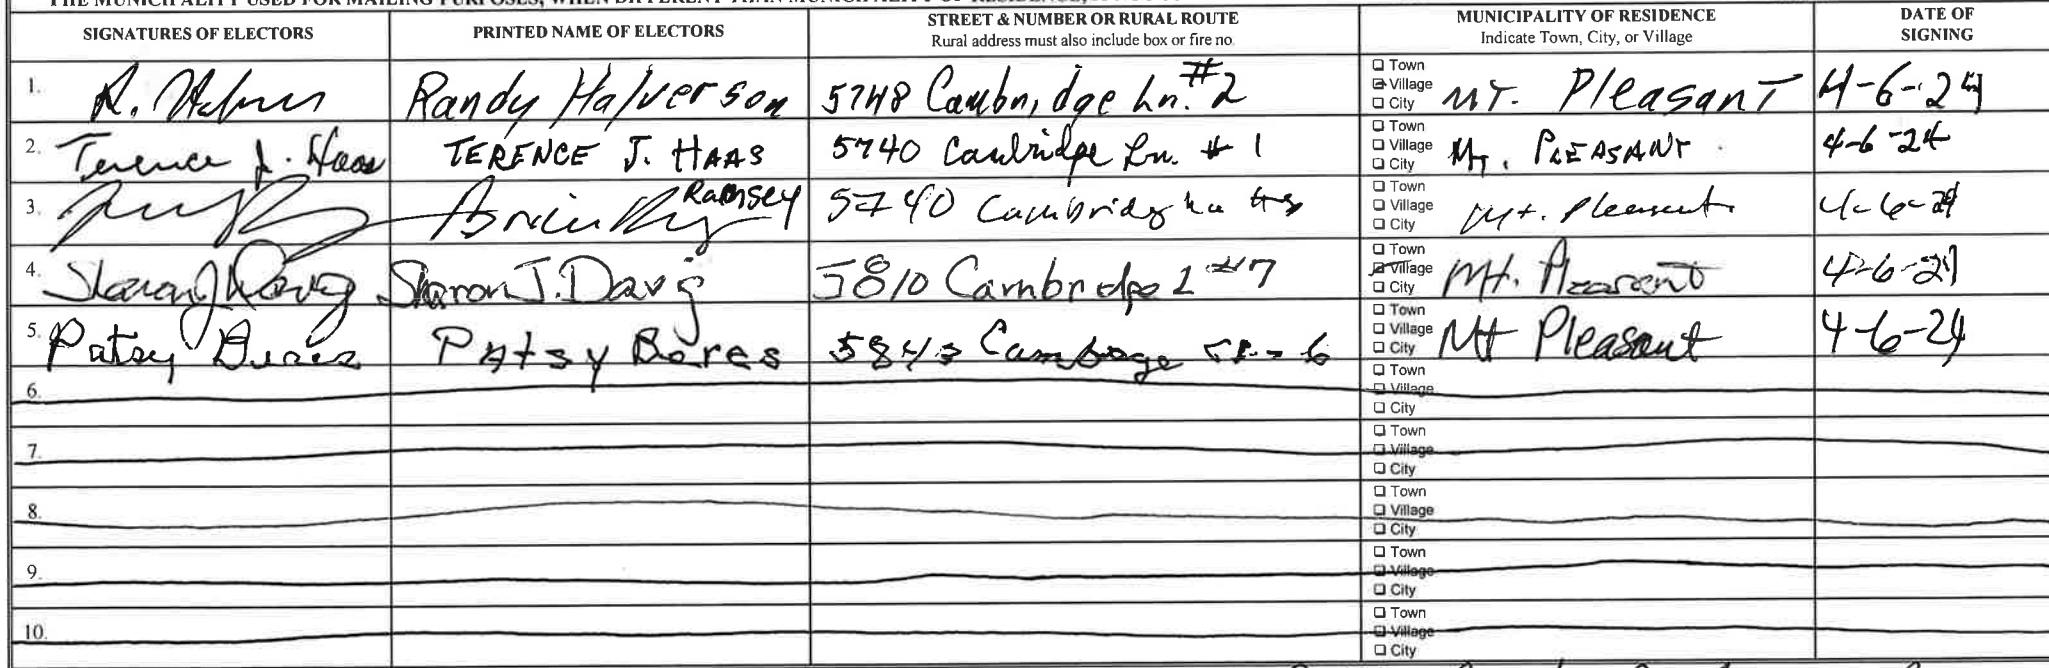 SIGNATURES OF ELECTORS PRINTED NAME OF ELECTORS STREET & NUMBER OR RURAL ROUTE MUNICIPALITY OF RESIDENCE DATE OF SIGNING
Rural address must also include box or fire no. Indicate Town, City, or Village
1. Randy Halverson 5748 Cambridge Ln. #2 Town Village City MT. Pleasant 4-6-24
2. Terence J. Haas TERENCE J. HAAS 5740 Cambridge Ln. # 1 Town Village City Mt. PLEASANT 4-6-24
3. Ramsey 5740 Cambridge Town Village City Mt. Pleasant 4-6-24
4. Sharon J. Sharon J. 5810 Cambridge #7 Town Village City Mt. Pleasant 4-6-24
5. Patsy Beres Patsy Beres Town Village City Mt Pleasant 4-6-24
6. Town Village City
7. Town Village City
8. Town Village City
9. Town Village City
10. Town Village City